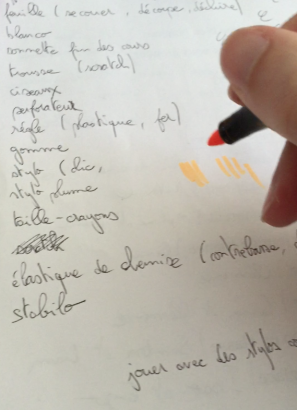 feuille (secouer, découpe, déchire)
blanco
sonnette fin des cours
trousse (scratch)
ciseaux
perforateur
règle (plastique, fer)
gomme
stylo (clic,
stylo plume
taille-crayons
élastique de chemise (contrebasse,
stabilo
jouer avec des stylos